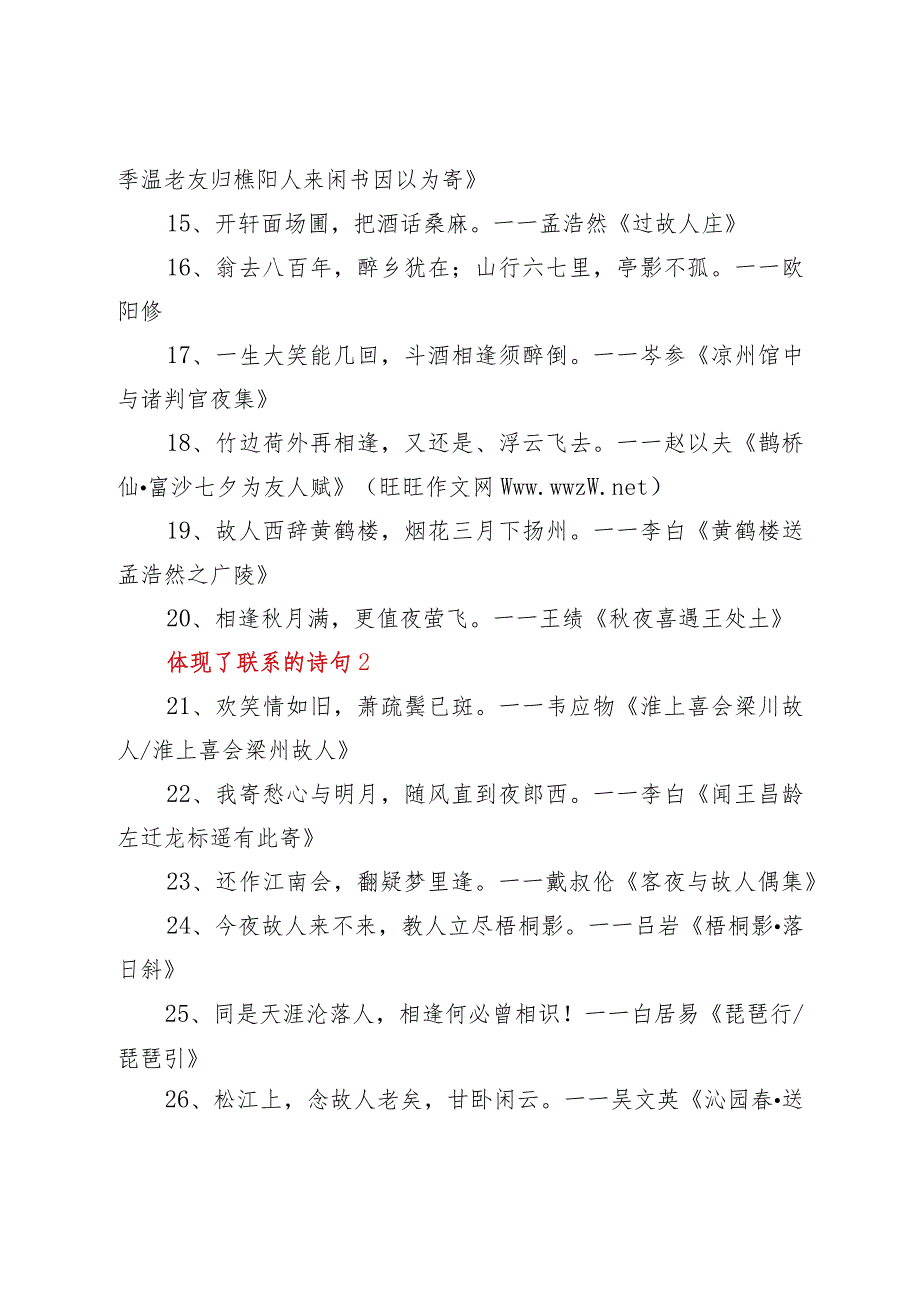 季温老友归樵阳人来闲书因以为寄》
15、开轩面场圃，把酒话桑麻。一一孟浩然《过故人庄》
16、翁去八百年，醉乡犹在；山行六七里，亭影不孤。一一欧
阳修
17、一生大笑能几回，斗酒相逢须醉倒。一一岑参《凉州馆中
与诸判官夜集》
18、竹边荷外再相逢，又还是、浮云飞去。一一赵以夫《鹊桥
仙•富沙七夕为友人赋》（旺旺作文网Www.wwzW.net）
19、故人西辞黄鹤楼，烟花三月下扬州。一一李白《黄鹤楼送
孟浩然之广陵》
20、相逢秋月满，更值夜萤飞。一一王绩《秋夜喜遇王处土》
体现了联系的诗句2
21、欢笑情如旧，萧疏鬓已斑。一一韦应物《淮上喜会梁川故
人/淮上喜会梁州故人》
22、我寄愁心与明月，随风直到夜郎西。一一李白《闻王昌龄
左迁龙标遥有此寄》
23、还作江南会，翻疑梦里逢。一一戴叔伦《客夜与故人偶集》
24、今夜故人来不来，教人立尽梧桐影。一一吕岩《梧桐影•落
日斜》
25、同是天涯沦落人，相逢何必曾相识！一一白居易《琵琶行/
琵琶引》
26、松江上，念故人老矣，甘卧闲云。一一吴文英《沁园春•送